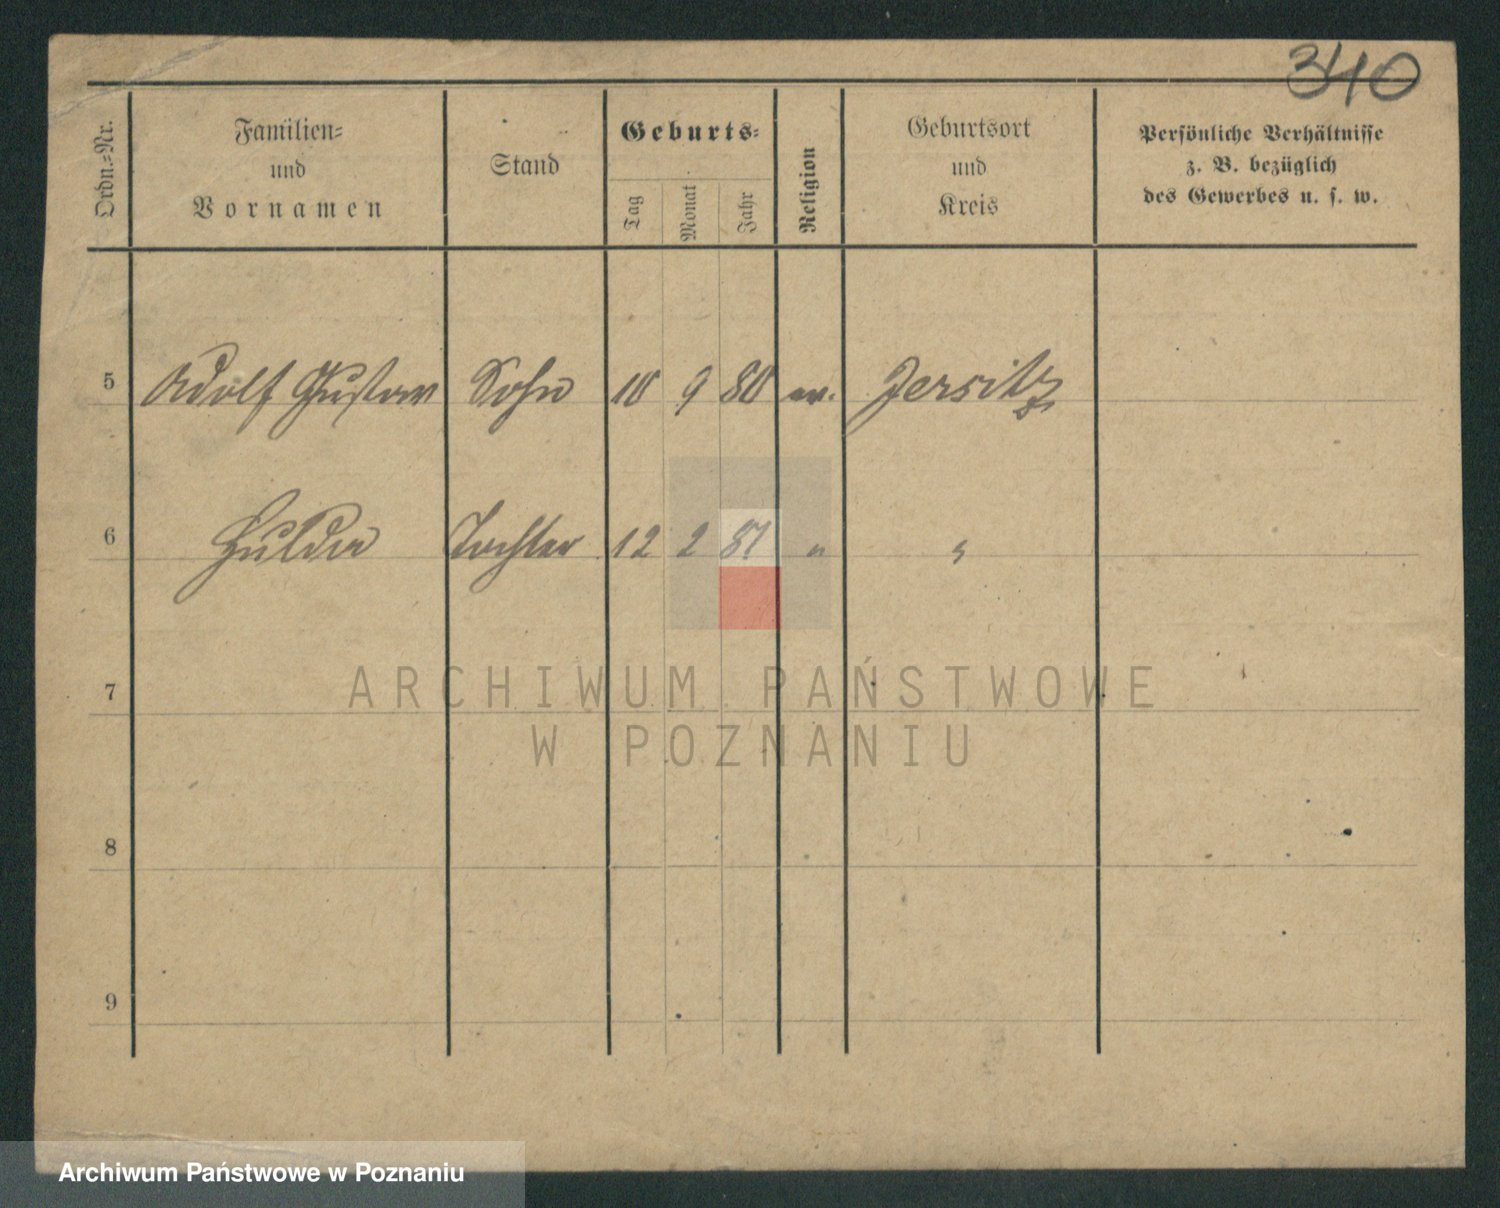 340
Ordn.=Nr.
Familien=
und
Vornamen
Stand
Geburts=
Tag
Monat
Jahr
Religion
Geburtsort
und
Kreis
Persönliche Verhältnisse
z. B. bezüglich
des Gewerbes u. s. w.
5 Adolf Gustav Sohn 10 9 80 ev. Jersitz
6 Hulda Tochter 12 2 87 " "
7
ARCHIWUM PAŃSTWOWE
W POZNANIU
8
9
Archiwum Państwowe w Poznaniu